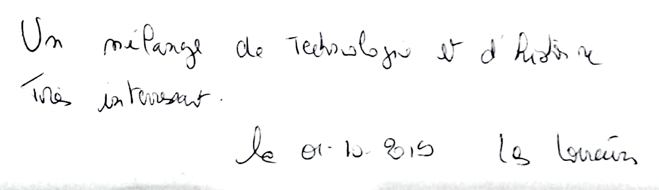 Un mélange de Technologie et d'histoire
Très interressant.
le 01-10-2019 Les Lorrains